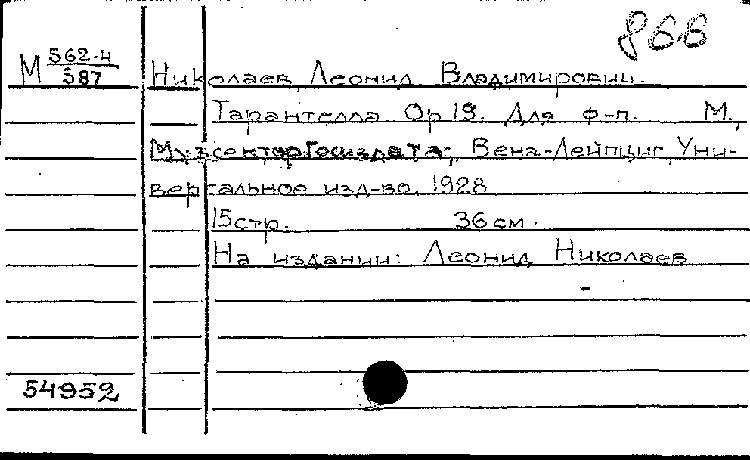 866
М 562-4/387 Николаев, Леонид Владимирович.
Тарантелла. Op 19. Для ф-п. М.,
МузсекторГосиздата; Вена-Лейпциг, Уни-
верcальное изд-во, 1928
15 стр. 36 см.
На издании: Леонид Николаев
54952